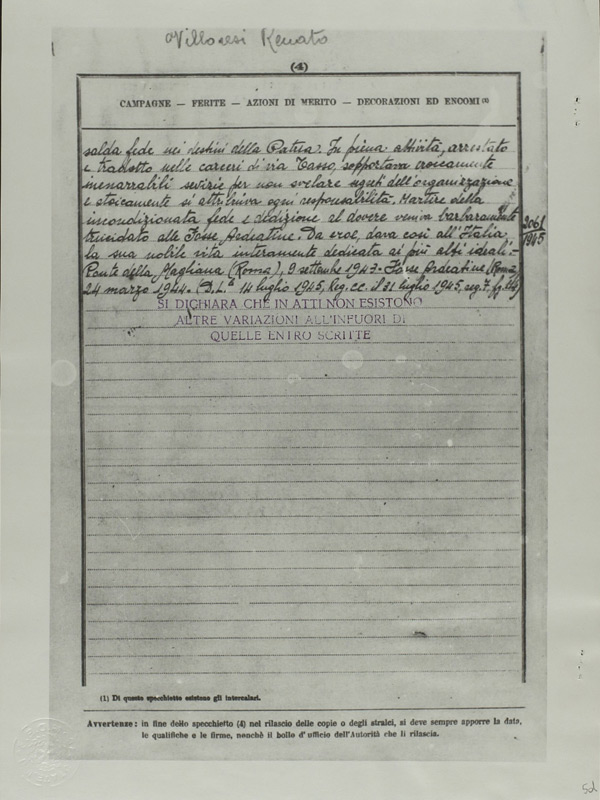 Villoresi Renato
(4)
CAMPAGNE — FERITE — AZIONI DI MERITO — DECORAZIONI ED ENCOMI (1)
salda fede nei destini della Patria. In piena attività, arrestato
e tradotto nelle carceri di via Tasso, sopportava eroicamente
inenarrabili sevizie per non svelare agenti dell'organizzazione
e stoicamente si attribuiva ogni responsabilità. Martire della
incondizionata fede e dedizione al dovere veniva barbaramente
trucidato alle Fosse Ardeatine. Da eroe, dava così all'Italia
la sua nobile vita interamente dedicata ai più alti ideali.-
Ponte della Magliana (Roma), 9 settembre 1943 - Fosse Ardeatine (Roma)
24 marzo 1944. (D.L. 14 luglio 1945, Reg. CC. il 31 luglio 1945, reg. 7, fg.
1945
SI DICHIARA CHE IN ATTI NON ESISTONO
ALTRE VARIAZIONI ALL'INFUORI DI
QUELLE ENTRO SCRITTE
(1) Di questo specchietto esistono gli intercalari.
Avvertenze: in fine dello specchietto (4) nel rilascio delle copie o degli stralci, si deve sempre apporre la data,
le qualifiche e le firme, nonchè il bollo d'ufficio dell'Autorità che li rilascia.